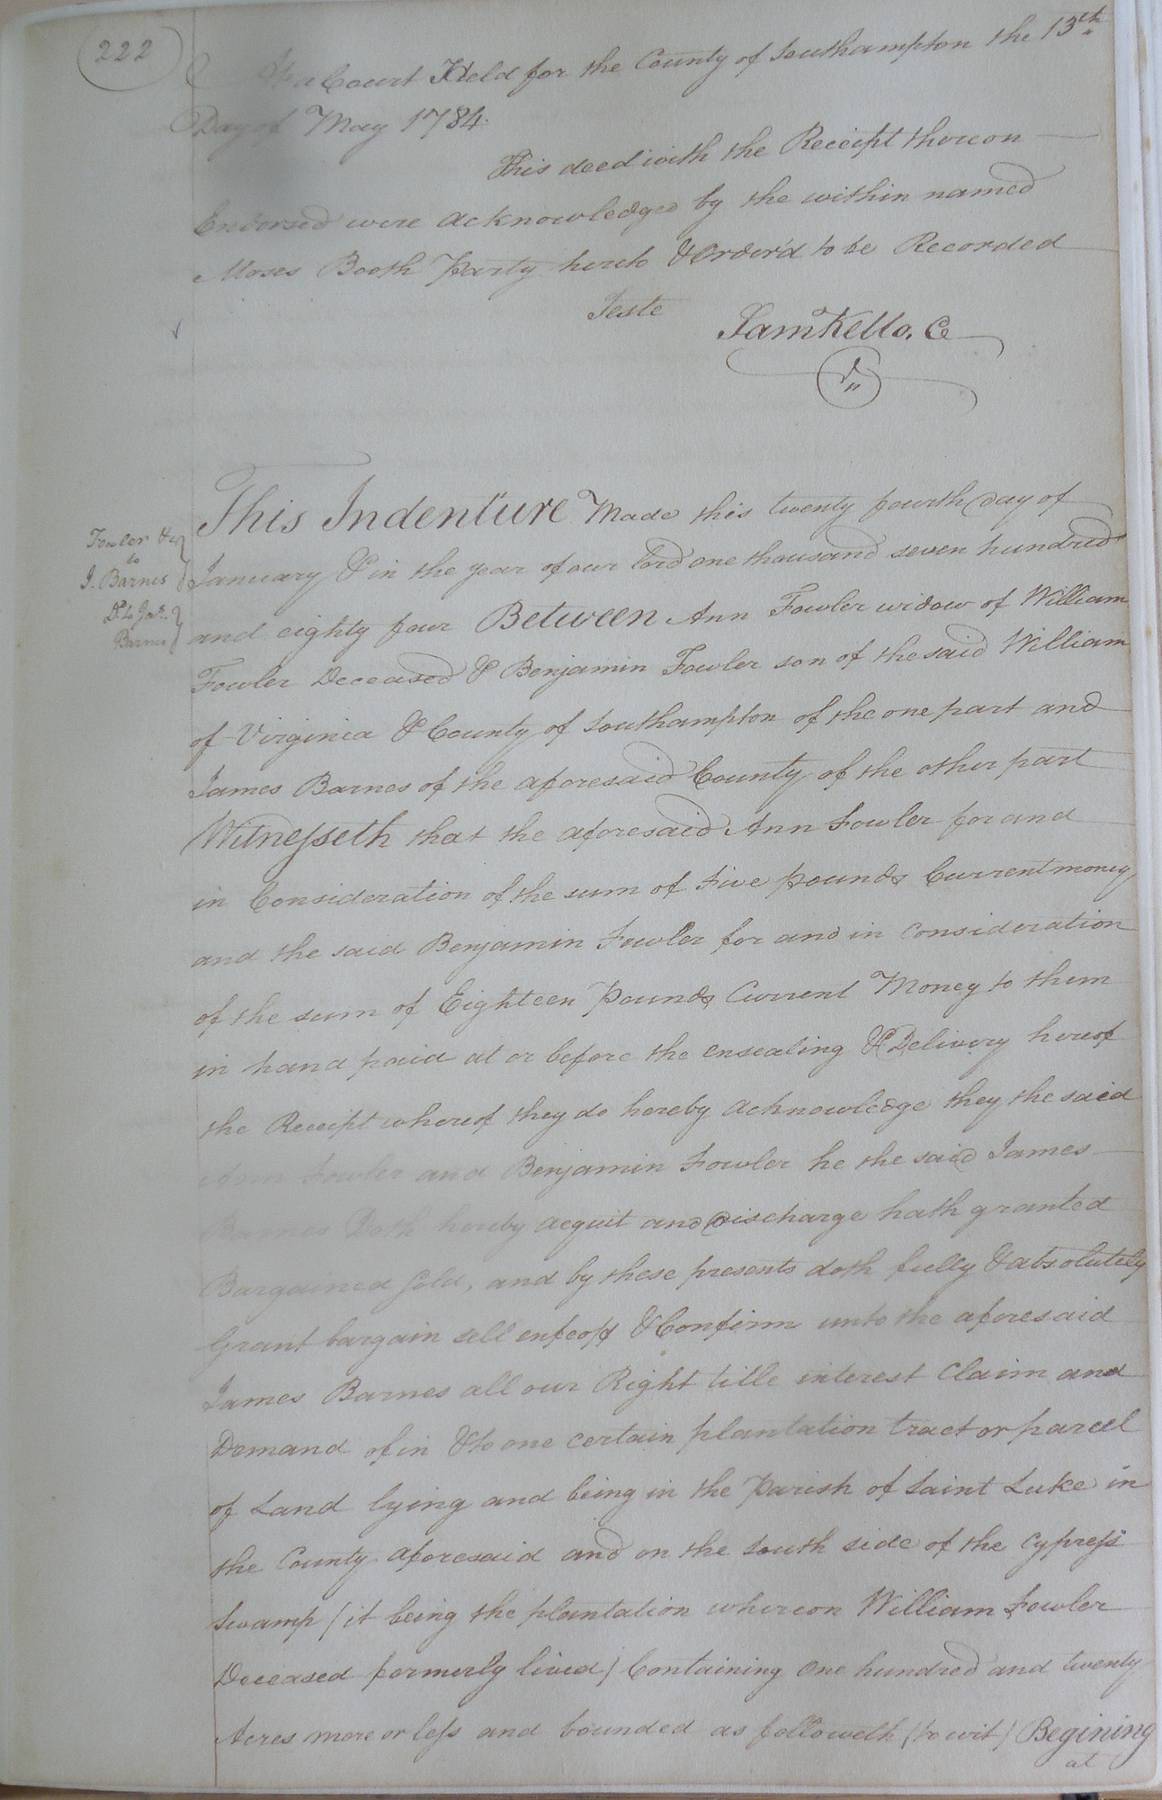 222
At a Court Held for the County of Southampton the 13th
Day of May 1784.
This deed with the Receipt thereon
Endorsed were acknowledged by the within named
Moses Booth party hereto & Order'd to be Recorded
Teste
Sam Kello. C
Fowler &c
to
J. Barnes
Do to Jas.
Barnes
This Indenture Made this twenty fourth day of
January & in the year of our lord one thousand seven hundred
and eighty four Between Ann Fowler widow of William
Fowler Deceased & Benjamin Fowler son of the said William
of Virginia & County of Southampton of the one part and
James Barnes of the aforesaid County of the other part
Witnesseth that the aforesaid Ann Fowler for and
in Consideration of the sum of five pounds Current money
and the said Benjamin Fowler for and in consideration
of the sum of Eighteen pounds Current Money to them
in hand paid at or before the ensealing & Delivery hereof
the Receipt whereof they do hereby acknowledge they the said
Ann Fowler and Benjamin Fowler he the said James
Barnes Doth hereby acquit and discharge hath granted
Bargained Sold, and by these presents doth fully & absolutely
Grant bargain sell enfeoff & Confirm unto the aforesaid
James Barnes all our Right title interest Claim and
Demand of in & to one certain plantation tract or parcel
of Land lying and being in the Parish of Saint Luke in
the County aforesaid and on the South side of the Cypress
Swamp (it being the plantation whereon William Fowler
Deceased formerly lived) Containing One hundred and twenty
Acres more or less and bounded as followeth (to wit) Begining
at